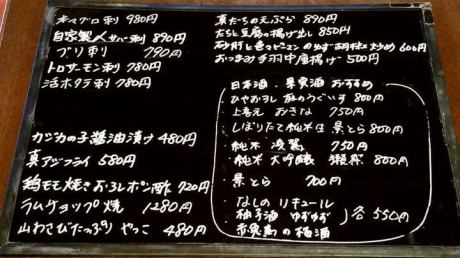 本マグロ刺 980円
自家製〆サバ刺 890円
ブリ刺 790円
トロサーモン刺 780円
活ホタテ刺 780円
カジカの子醤油漬け 480円
真アジフライ 580円
鶏モモ焼きおろしポン酢 720円
ラムチョップ焼 1280円
山わさびたっぷりやっこ 480円
真だちの天ぷら 890円
たちと豆腐の揚げ出し 850円
砂肝と色つピーマンのゆず胡椒炒め 600円
おつまみ手羽中唐揚げ 500円
日本酒・果実酒 おすすめ
ひやおろし 800円
上喜元 おきな 750円
しぼりたて純米生 景とら 800円
・純米 750円
・純米大吟醸 獺祭 800円
・景とら 700円
・なしのリキュール
・柚子酒 ゆずゆず
の梅酒
各550円